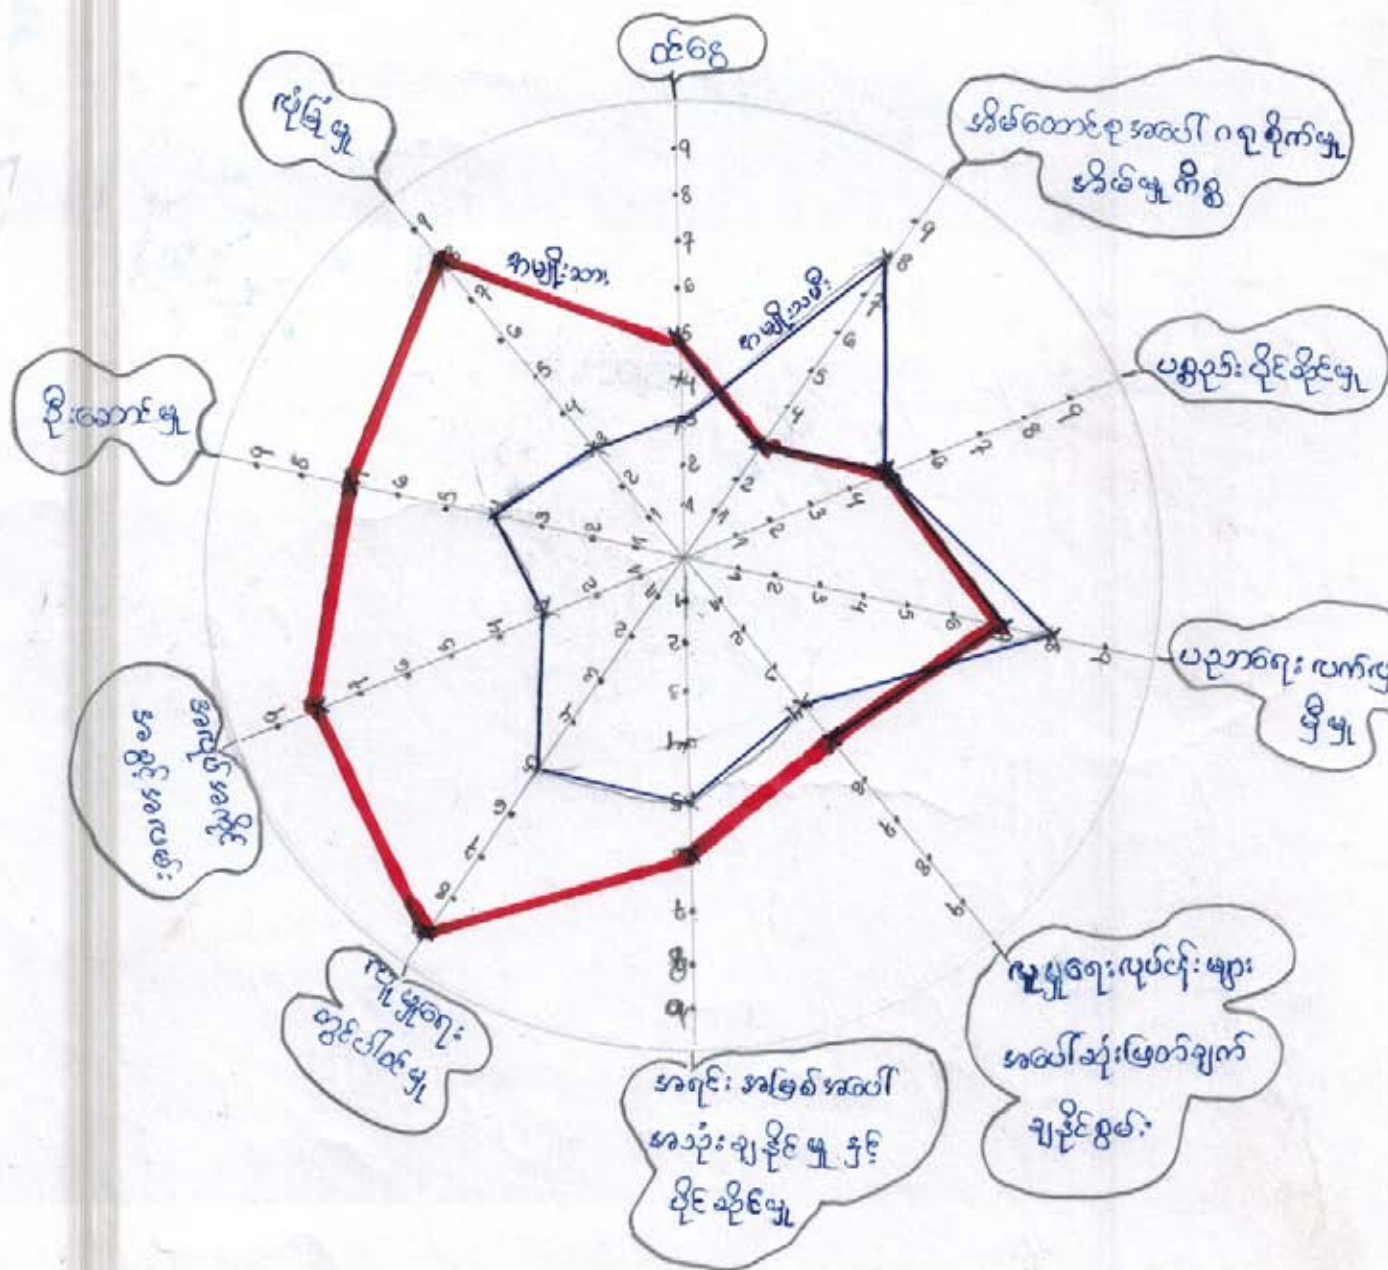 ဝင်ငွေ
အိမ်ထောင်စုအပေါ် ဂရုစိုက်မှု
အိမ်မှုကိစ္စ
ပစ္စည်းပိုင်ဆိုင်မှု
ပညာရေးလက်လှမ်း
မှီမှု
လူမှုရေးလုပ်ငန်းများ
အပေါ်ဆုံးဖြတ်ချက်
ချနိုင်စွမ်း
အရင်းအမြစ်အပေါ်
အသုံးချနိုင်မှု နှင့်
ပိုင်ဆိုင်မှု
လူမှုရေး
တွင်ပါဝင်မှု
အလုပ်အကိုင်
အခွင့်အလမ်း
ဦးဆောင်မှု
လုံခြုံမှု
အမျိုးသား
အမျိုးသမီး
1 2 3 4 5 6 7 8 9